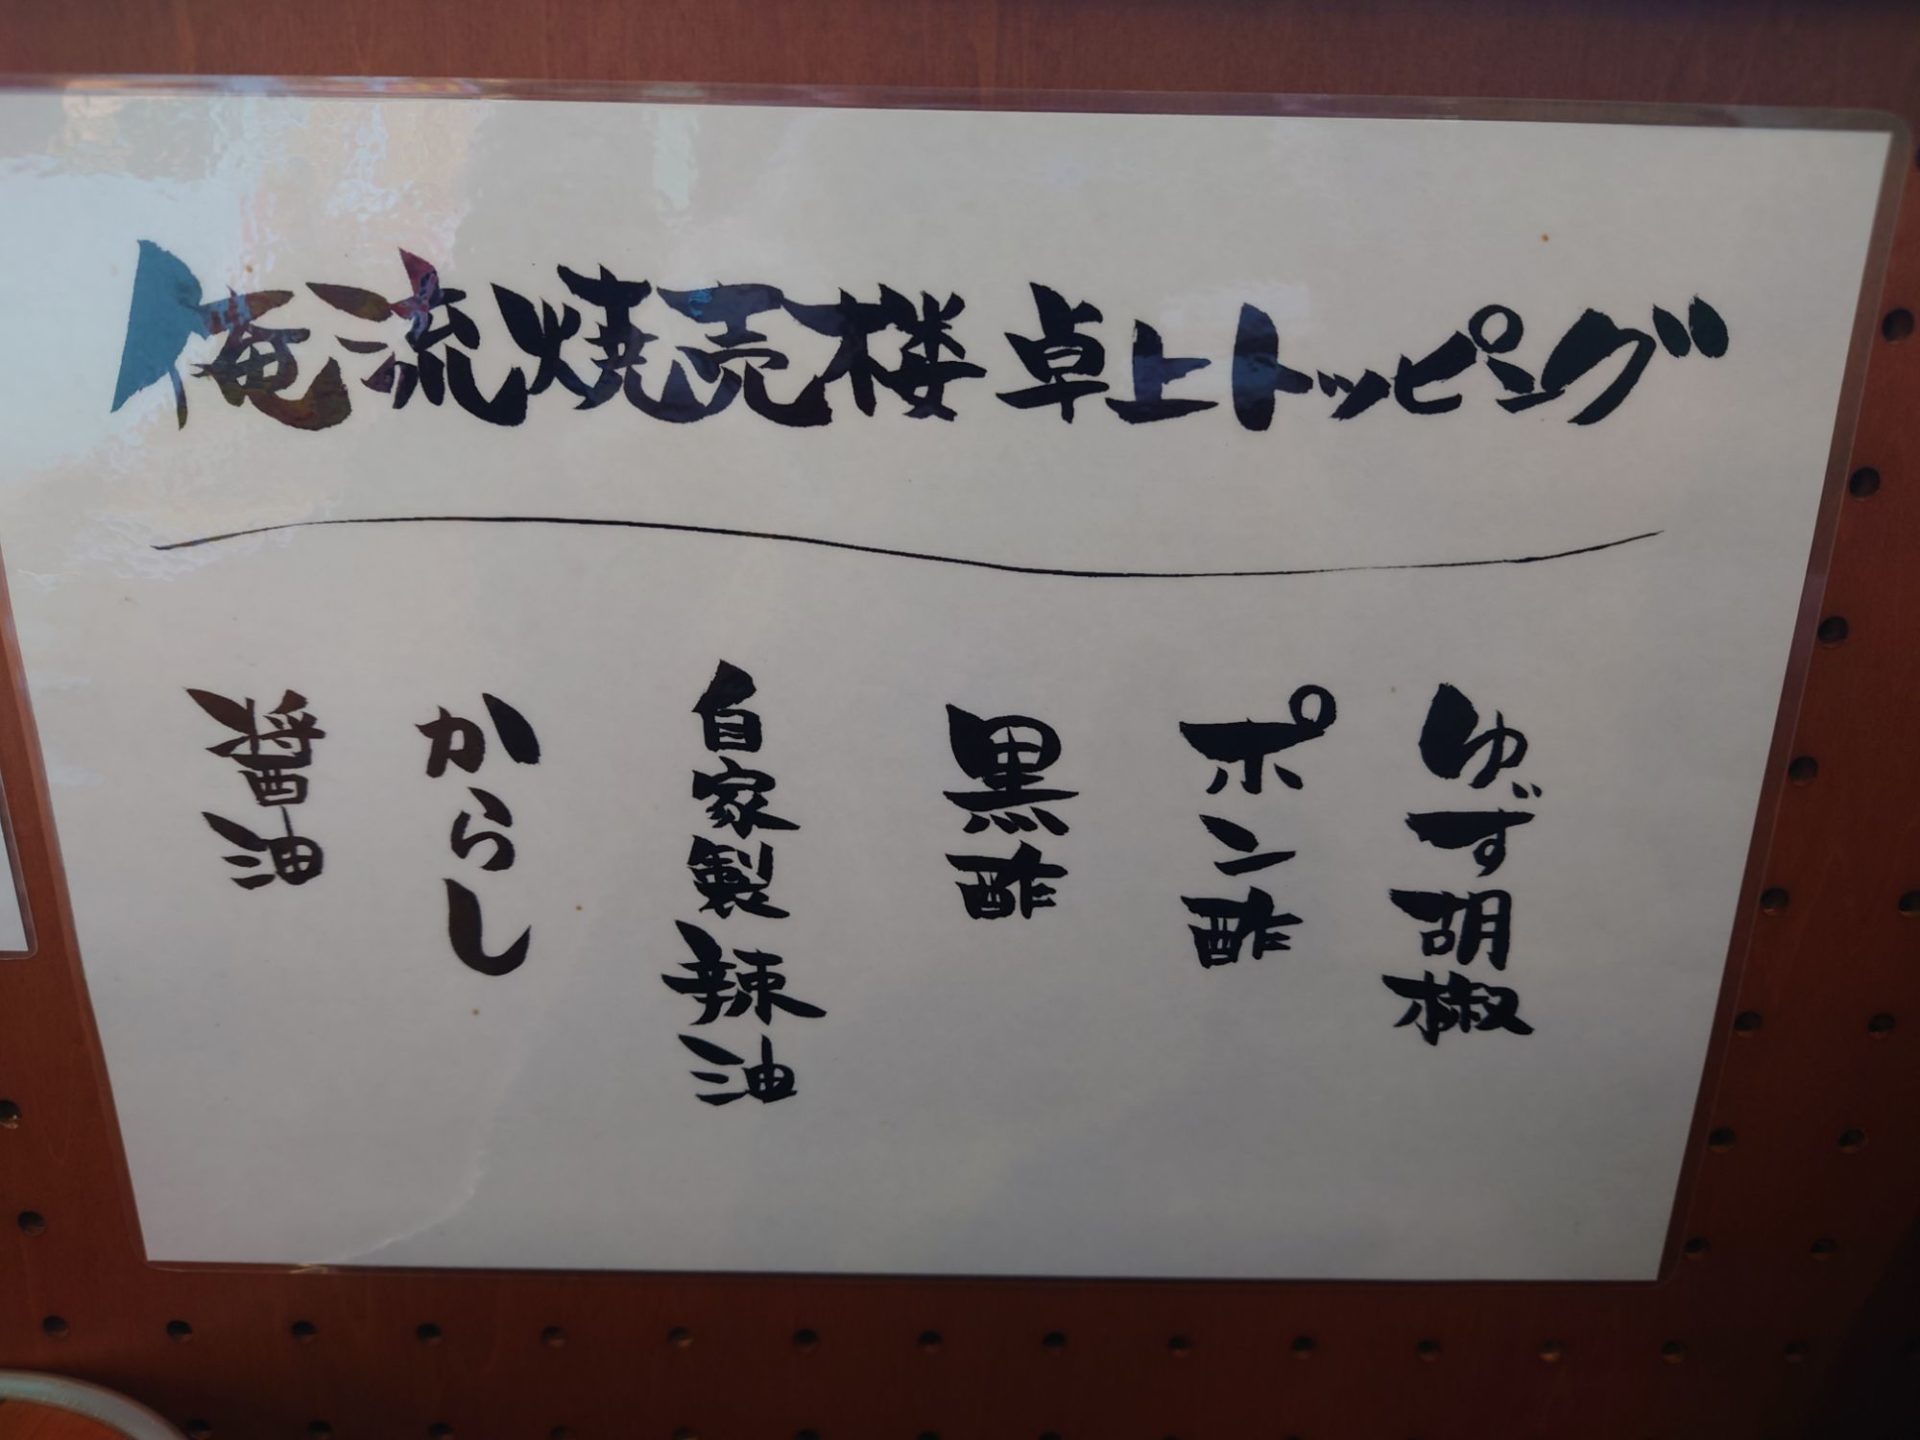 俺流焼売楼 卓上トッピング
ゆず胡椒
ポン酢
黒酢
自家製辣油
からし
醤油